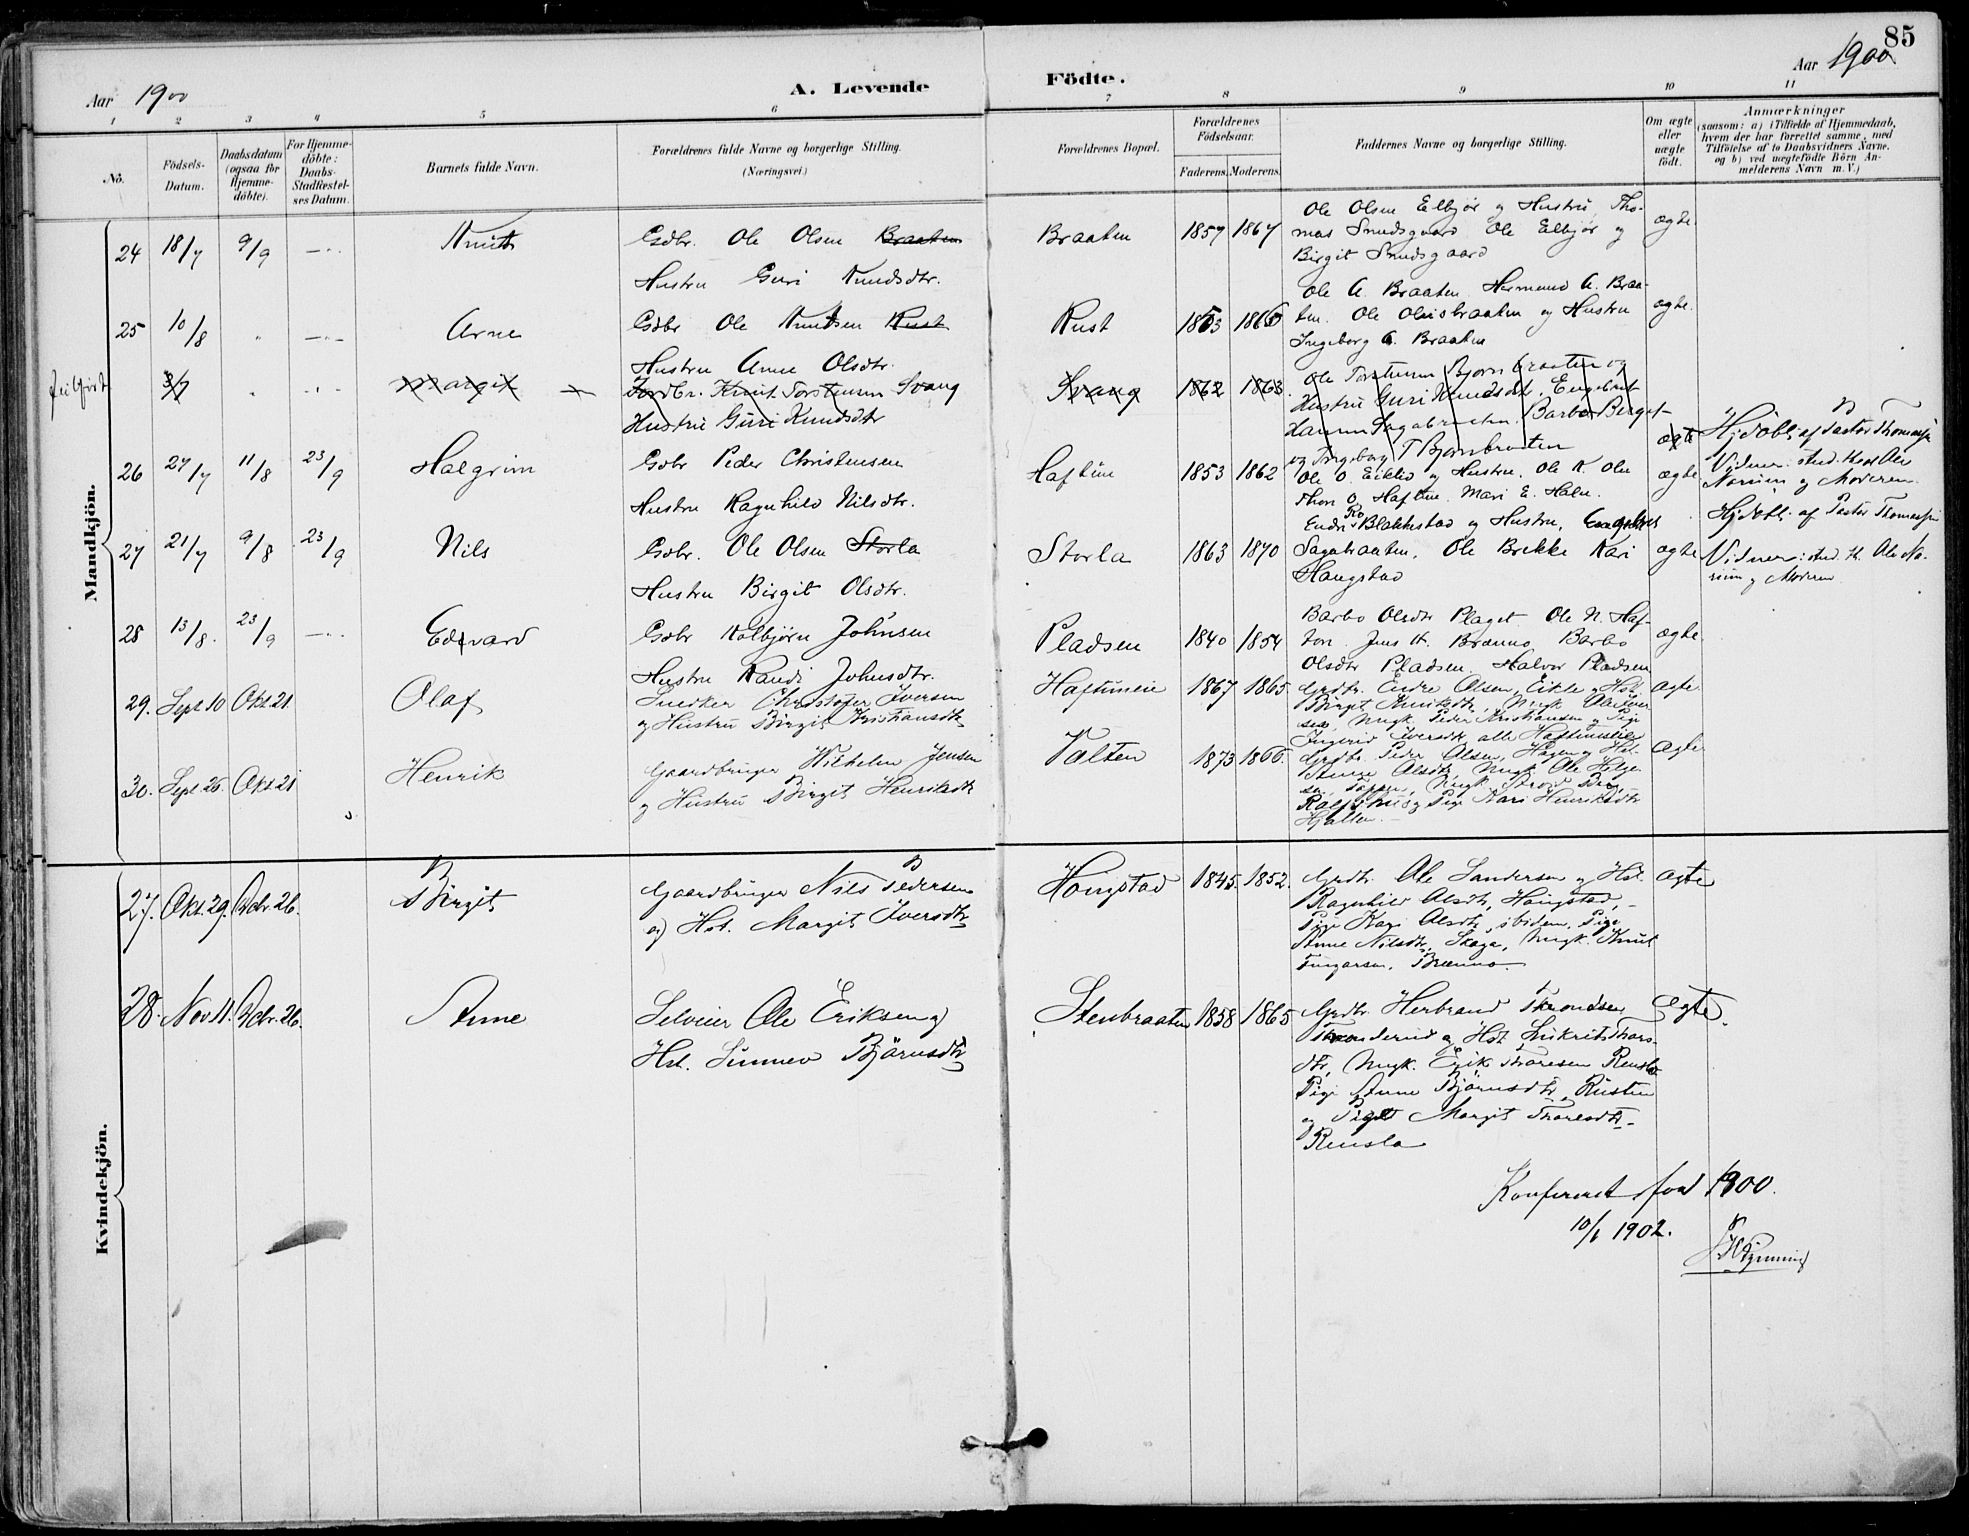 85
Aar 1900
A. Levende Födte.
Aar 1900
1 2 3 4 5 6 7 8 9 10 11
No.
Födsels-Datum.
Daabsdatum (ogsaa for Hjemme-döbte).
For Hjemme-döbte: Daabs-Stadfæstel-ses Datum.
Barnets fulde Navn.
Forældrenes fulde Navne og borgerlige Stilling.
(Næringsvei.)
Forældrenes Bopæl.
Forældrenes Födselsaar.
Faderens. Moderens.
Faddernes Navne og borgerlige Stilling.
Om ægte eller uægte födt.
Anmærkninger
(saasom: a) i Tilfælde af Hjemmedaab,
hvem der har forrettet samme, med
Tilföielse af to Daabsvidners Navne.
og b) ved uægtefödte Börn An-
melderens Navn m. V.)
Mandkjön.
24 18/7 9/9 Knut
Gdbr. Ole Olsen Braaten
Hustru Guri Knudsdtr.
Braaten 1857 1867
Ole Olsen Elbjør og Hustru, Tho-
mas Smedsgaard Ole Elbjør og
Birgit Smedsgaard
ægte
25 10/8 " Arne
Gdbr Ole Knudsen Rust
Hustru Anne Olsdtr.
Rust 1853 1865
Ole A. Braaten Hermand A. Braa-
ten. Ole Olsisbraaten og Hustru
Ingeborg A. Braaten
ægte.
feilført 3/7 " Margit
Jordbr. Knut Torstensen Svang
Hustru Guri Knudsdtr
Svang 1862 1863.
Ole Torstensen Bjørnbraaten og
Hustru Guri Knudsdt, Engebret
Hansen Sagabraaten, Barbo Berget
og Ingeborg T Bjørnbraaten
ægte
26 27/7 11/8 23/9 Halgrim
Gdbr Peder Christensen
Hustru Ragnhild Nilsdtr.
Haftun 1853 1862
Ole O. Eiklid og Hustru. Ole K. Ole
Thor O. Haftun. Mari E. Halu.
ægte
Hjdøbt af Pastor Thomassen
Vidner: stud. theol Ole
Norum og Moderen.
27 21/7 9/8 23/9 Nils
Gdbr. Ole Olsen Storla
Hustru Birgit Olsdtr.
Storla 1863 1870
Endre Blakkestad og Hustru, Engebret
Sagabraaten, Ole Brekke Kari
Haugstad
ægte
Hjdøbt af Pastor Thomassen
Vidner: stud. th. Ole No-
rum og Moderen
28 13/8. 23/9 Edvard
Gdbr Kolbjørn Johnsen
Hustru Randi Johnsdtr.
Pladsen 1840 1854
Barbo Olsdtr Plaget Ole N. Haf-
ton Jens H. Brenno Barbo
Olsdtr Pladsen. Halvor Pladsen
ægte
29. Sept 10 Okt. 21 Olaf
Snedker Christofer Iversen
og Hustru Birgit Kristiansdtr
Haftuneie 1867 1865.
Grdbr. Endre Olsen, Eikle og Hst.
Birgit Knutsdtr, Ungk. Ole Iver-
sen, Ungk. Peder Kristiansen og Pige
Ingerid Iversdtr, alle Haftuneeie
ægte.
30. Sept 26. Okt 21 Henrik
Gaardbruger Wilhelm Jensen
og Hustru Birgit Henriksdtr
Valten 1873 1866.
Grdbr Peder Olsen, Hagen og Hst.
Anne Olsdtr, Ungk. Ole Helge-
sen, Toppen, Ungk. Arvid
og Pige Kari Henriksdtr
Hjalten.
Ægte
Kvindekjön.
27. Okt. 29. Dcbr. 26. Birgit
Gaardbruger Nils Pedersen
og Hst. Margit Iversdtr
Haugstad 1845. 1852.
Grdbr. Ole Sandersen og Hst.
Ragnhild Olsdtr, Haugstad,
Pige Kari Olsdtr, ibidem, Pige
Anne Nilsdtr, Skaga, Ungk. Knut
Tingarsen, Brenno.
Ægte
28. Nov 11. Dcbr. 26. Anne
Selveier Ole Eriksen og
Hst. Sünnev Björnsdtr
Stenbraaten 1858 1865
Grdbr. Herbrand Throndsen
Thronderud og Hst. Snikrit Thors-
dtr, Ungk. Erik Thoresen Rensla
Pige Anne Björnsdtr, Rusten
og Pige Margit Thoresdtr.
Rensla
Ægte.
Konfereret for 1900.
10/1 1902.